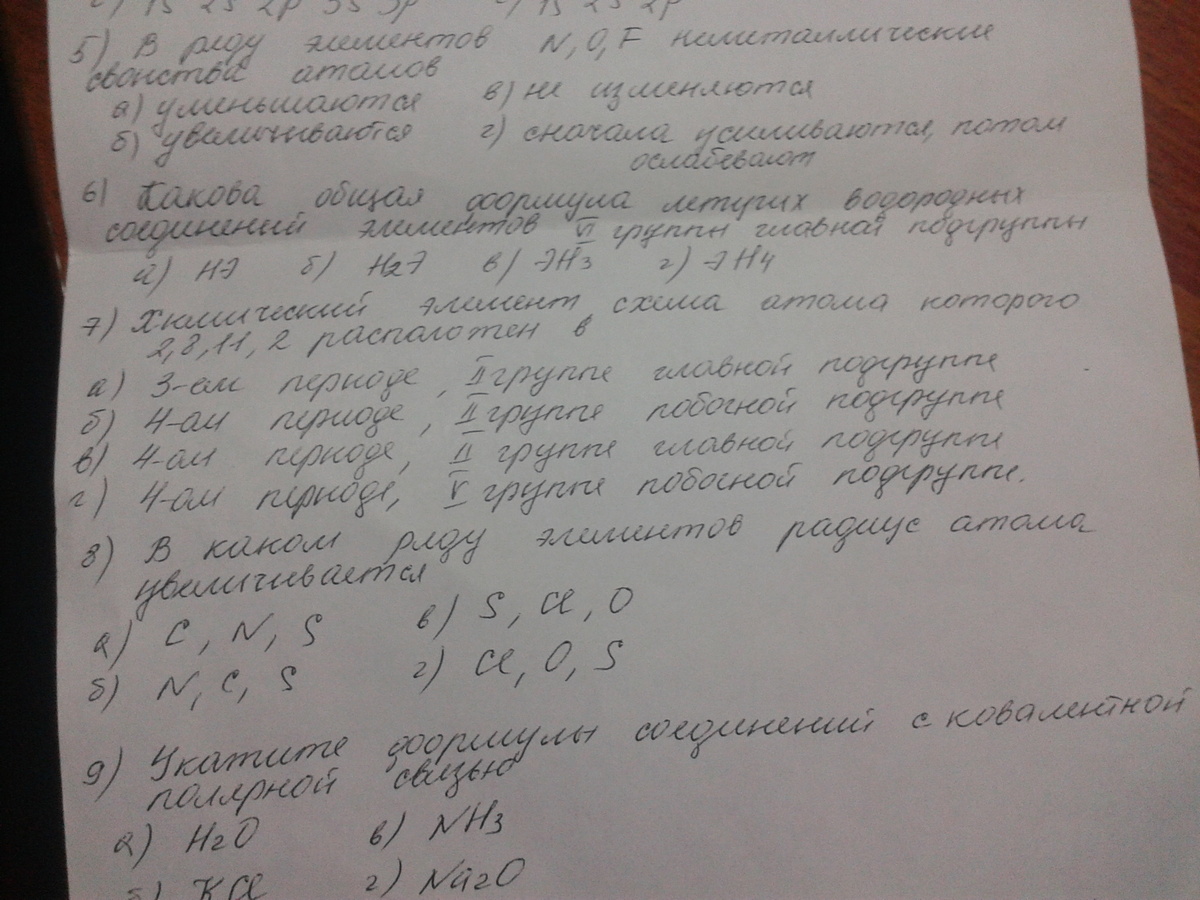 5) В ряду элементов N, O, F неметаллические
свойства атомов
а) уменьшаются в) не изменяются
б) увеличиваются г) сначала усиливаются, потом
ослабевают
6) Какова общая формула летучих водородных
соединений элементов VI группы главной подгруппы
а) HЭ б) H2Э в) ЭH3 г) ЭH4
7) Химический элемент, схема атома которого
2, 8, 11, 2 расположен в
а) 3-ем периоде, II группе главной подгруппе
б) 4-ом периоде, II группе побочной подгруппе
в) 4-ом периоде, II группе главной подгруппе
г) 4-ом периоде, V группе побочной подгруппе.
8) В каком ряду элементов радиус атома
увеличивается
а) C, N, S в) S, Cl, O
б) N, C, S г) Cl, O, S
9) Укажите формулы соединений с ковалентной
полярной связью
а) H2O в) NH3
б) KCl г) Na2O